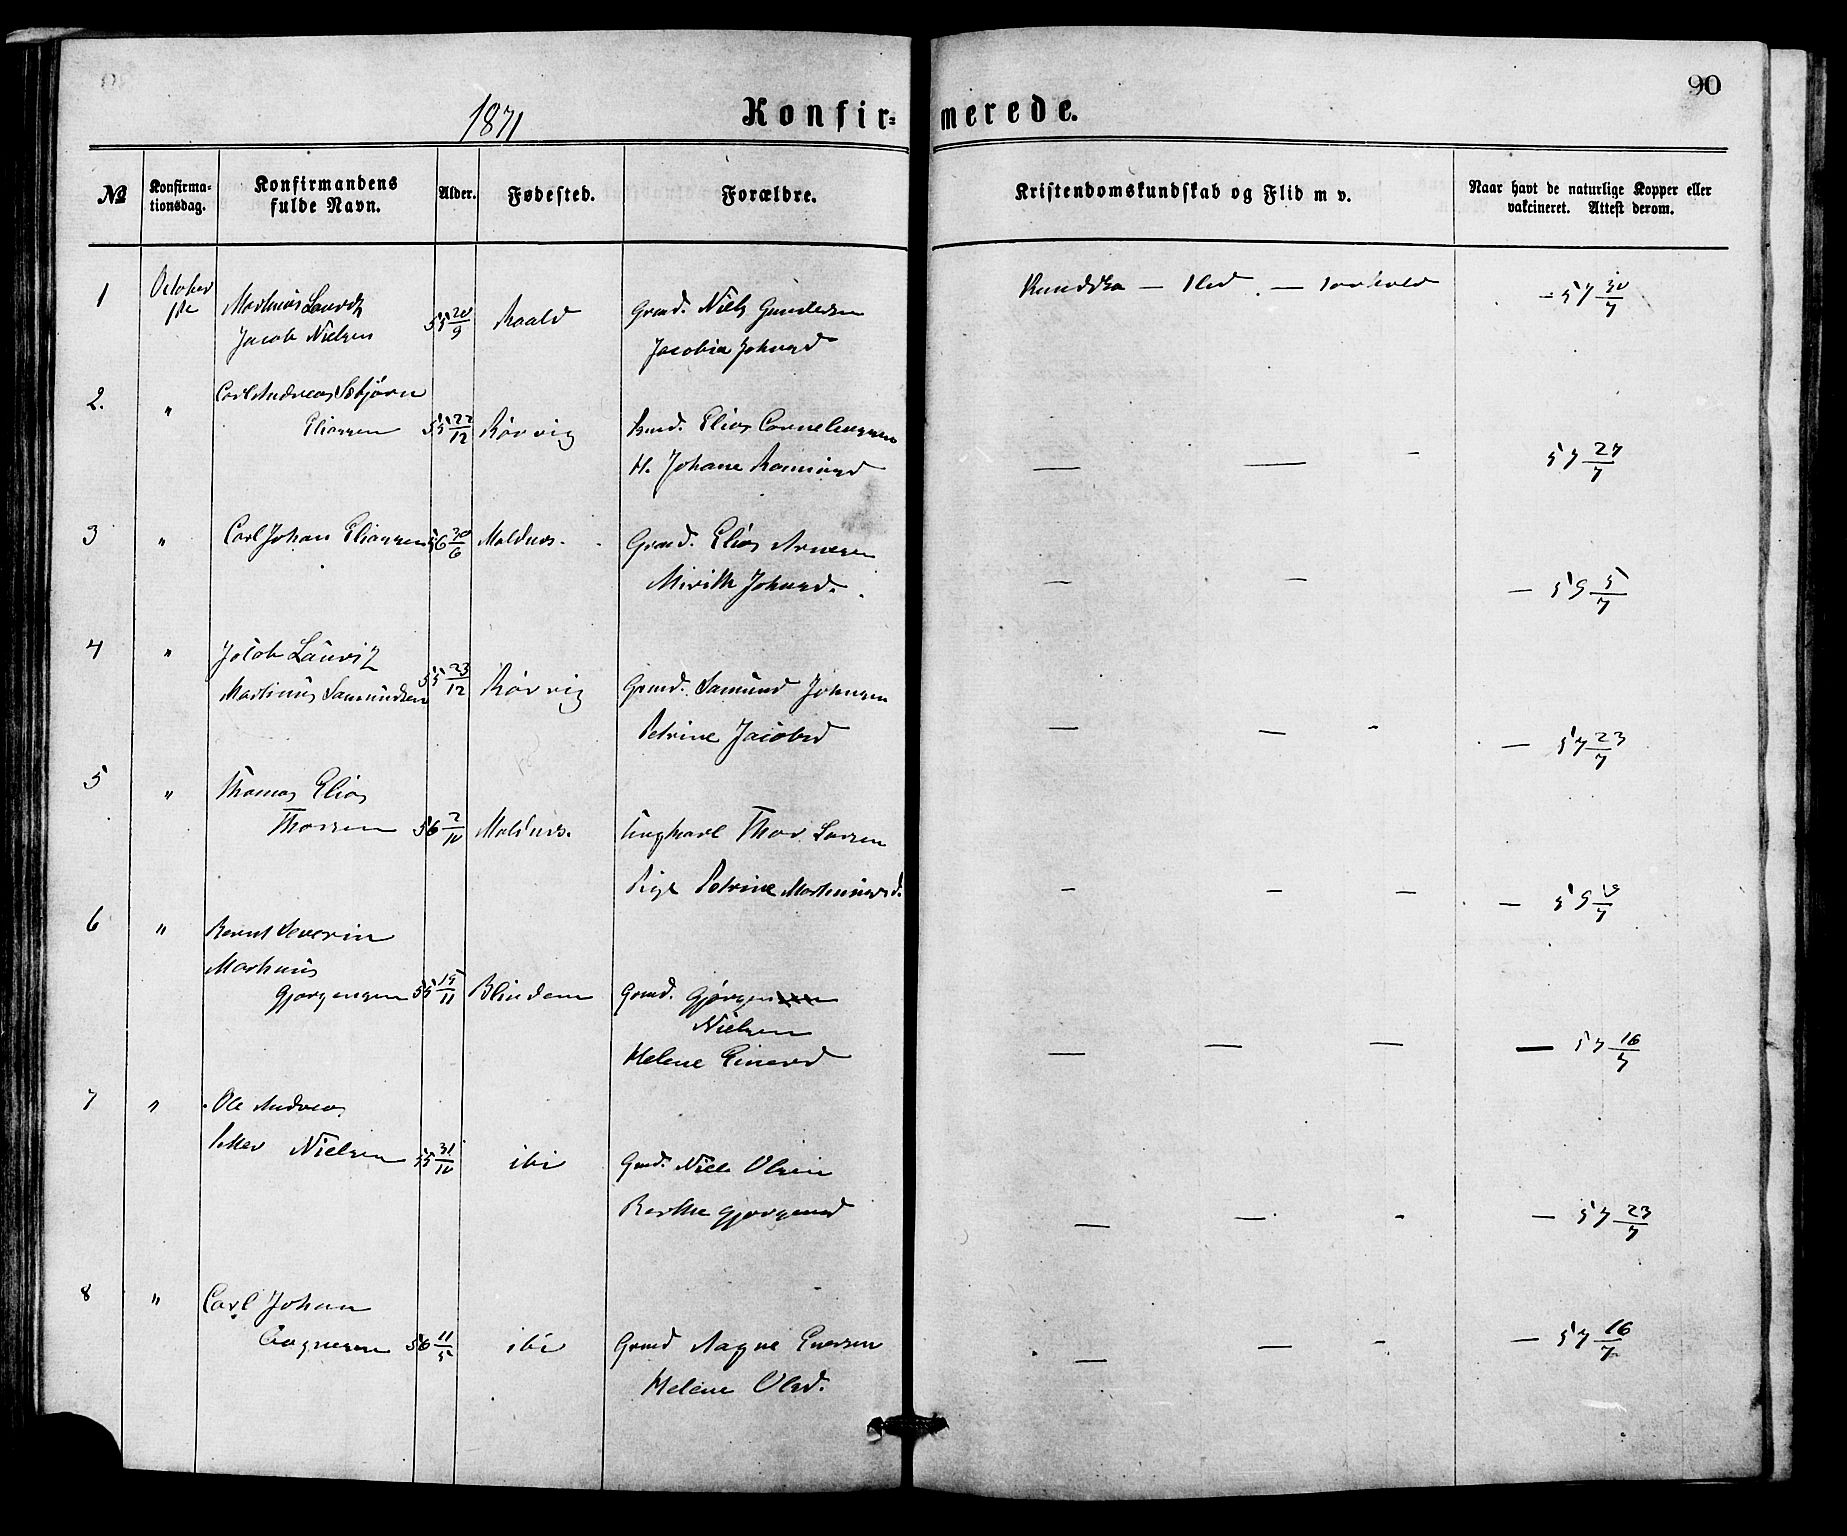 90
1871
Konfir-merede.
№
Konfirma-
tionsdag.
Konfirmandens
fulde Navn.
Alder.
Fødested.
Forældre.
Kristendomskundskab og Flid m v.
Naar havt de naturlige Kopper eller
vakcineret. Attest derom.
1 October 1ste Martinus Lauritz
Jacob Nielsen 55 20/9 Roald Grmd. Niels Gundersen
Jacobia Johnsd
57 30/7
2. " Carl Andreas Esbjørn
Eliassen 55 22/12 Rørvig Grmd. Elias Corneliussen
H. Johane Rasmusd
— — - 57 27/7
3 " Carl Johan Eliassen 56 30/6 Moldnes. Grmd. Elias Arnesen
Mirith Johnsd.
— — — 59 5/7
4 " Jacob Lauritz
Martinus Samundsen 55 23/12 Rørvig Grmd. Samund Johnsen
Petrine Jacobsd
— — - — 57 23/7
5 " Thomas Elias
Thorsen 56 2/10 Moldnes. Ungkarl Thor Larsen
Pige Petrine Martinusd.
— — — — 59
6 " Bernt Severin
Martinus
Gjørgensen 55 15/11 Blindem Grmd. Gjørgen
Nielsen
Helene Einersd
— — — — 57 16/7
7 " Ole Andreas
Petter Nielsen 55 31/10 ibi Gmd. Niels Olsen
Berthe Gjørgensd
— — - — 57 23/7
8 " Carl Johan
Aagnesen 56 11/5 ibi Grmd Aagne Enersen
Helene Olsd.
— — - — 57 16/7